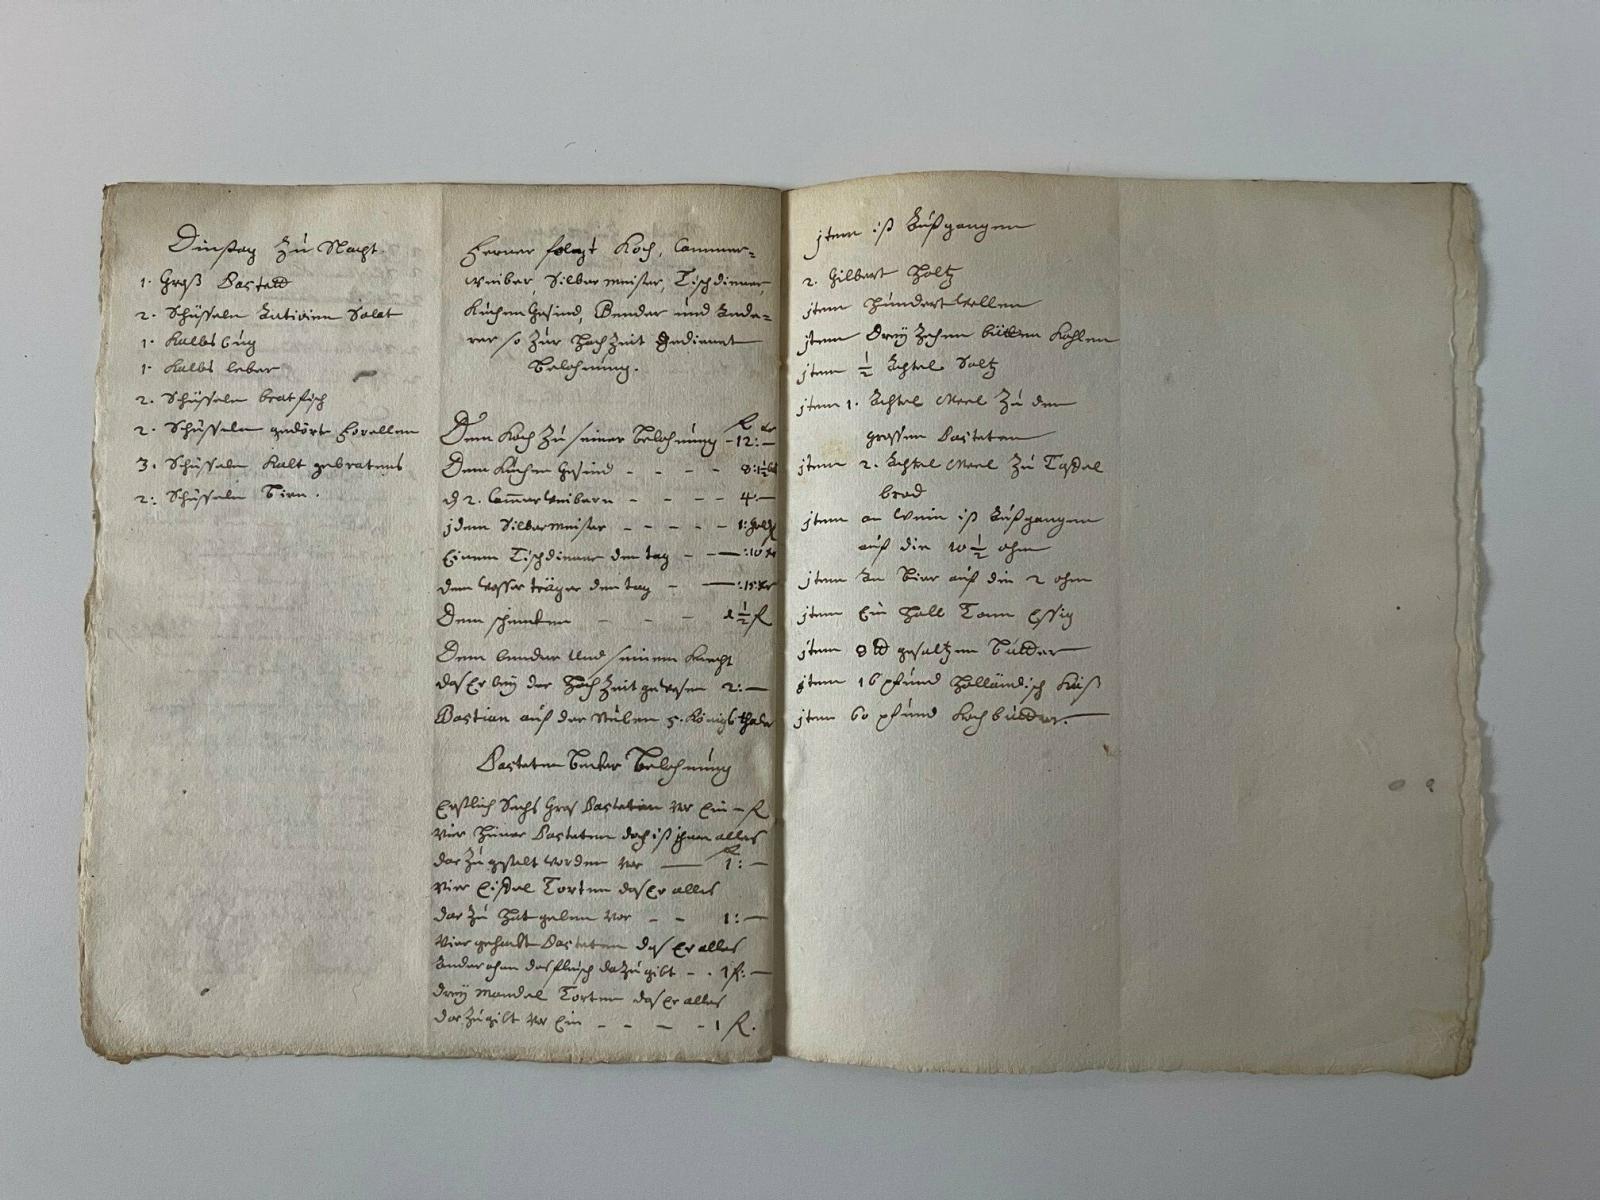 Dinstag Zu Nacht.
1. Groß Pastett
2. Schüsseln Antivien Salat
1. Kalbs bug
1. Kalbs leber
2. Schüsseln bratfisch
2. Schüsseln gedörte Forellen
3. Schüsseln Kalt gebratens
2. Schüsseln Birn.
Ferner folgt Koch, Cammer-
weiber, Silbermeister, Tischdiener,
Küchen Gesind, Bender und Ande-
rer so Zur HochZeit gedienet
Belohnung.
Dem Koch Zu seiner Belohnung - 12:-
Dem Küchen Gesind - - - -
2. Cammerweibern - - - - 4:-
jdem Silbermeister - - - - - 1:
Einem Tischdiener den tag - -
dem Wasser träger den tag -
Dem schencken - - -
Dem bender Und seinem Knecht
das Er bey der HochZeit gewesen 2:-
Bastian auf der stuben 5. Königsthaler
Pasteten Becker Belohnung
Erstlich Sechs Gros Pasteten vor Ein - fl
vier Hüner Pasteten doch ist ihm alles
darZu gestelt worden vor 1:-
vier Eistel Torten das Er alles
dar Zu Hat geben vor - - 1:-
Vier gehackt Pasteten das Er alles
Ander ohen das fleisch daZu gibt - - 1 fl:-
drey Mandel Torten das Er alles
dar Zu gibt vor Ein - - - - 1 fl.
jtem ist Aufgangen
2. Gilbert Holtz
jtem Hundert Wellen
jtem drey Zehen bütten Kohlen
jtem ½ Achtel Saltz
jtem 1. Achtel Meel Zu den
grossen Pasteten
jtem 2. Achtel Meel Zu Taffel
brod
jtem an Wein ist Aufgangen
auf die 10½ ohm
jtem An Bier auf die 2 ohm
jtem Ein Halb Tonn Essig
jtem 8 lb gesaltzen Butter
jtem 16 pfund Holländisch Käß
jtem 60 pfund Koch butter.